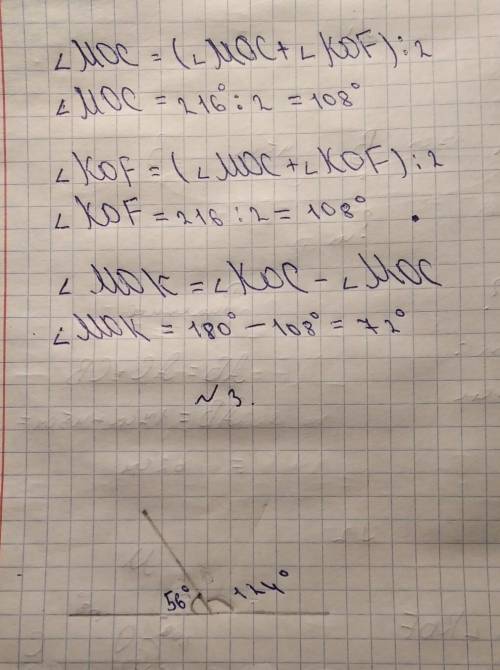 ∠MOC = (∠MOC + ∠KOF) : 2
∠MOC = 216° : 2 = 108°
∠KOF = (∠MOC + ∠KOF) : 2
∠KOF = 216 : 2 = 108°
∠MOK = ∠KOC - ∠MOC
∠MOK = 180° - 108° = 72°
№ 3.
56° 124°